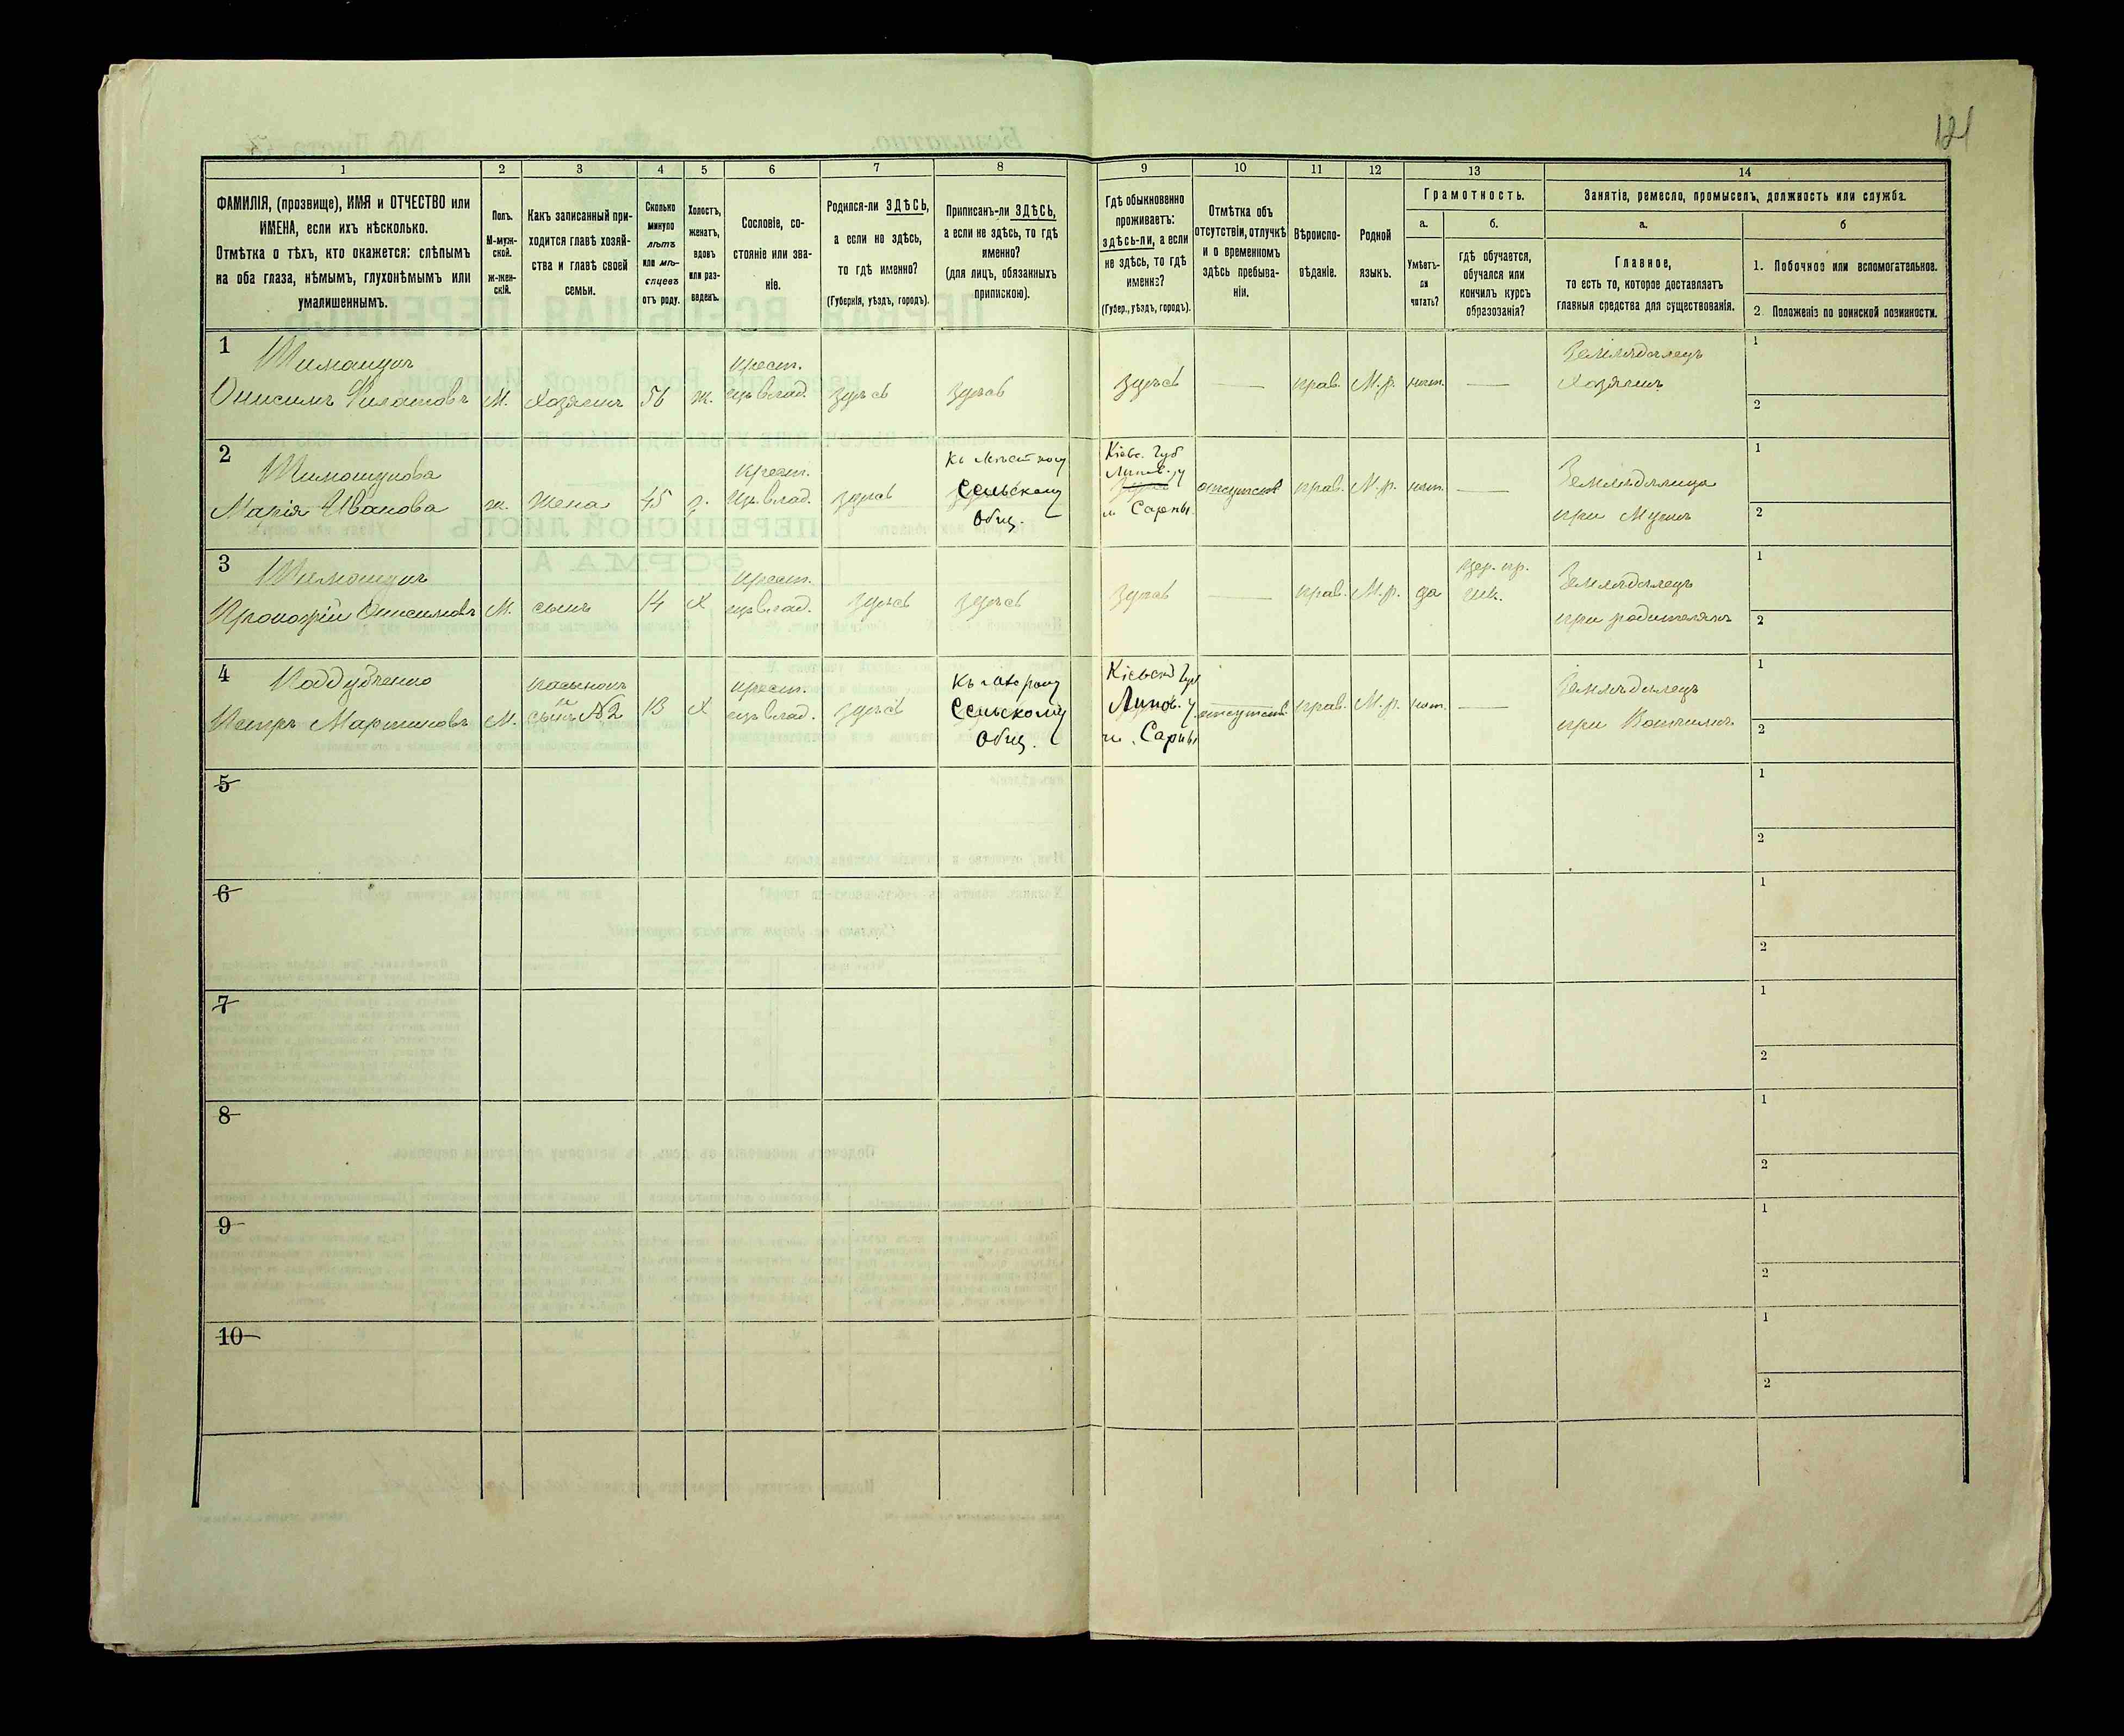 121
1 2 3 4 5 6 7 8 9 10 11 12 13 14
ФАМИЛІЯ, (прозвище), ИМЯ и ОТЧЕСТВО или
ИМЕНА, если ихъ нѣсколько.
Отмѣтка о тѣхъ, кто окажется: слѣпымъ
на оба глаза, нѣмымъ, глухонѣмымъ или
умалишеннымъ.
Полъ.
М-муж-
ской.
ж-жен-
скій.
Какъ записанный при-
ходится главѣ хозяй-
ства и главѣ своей
семьи.
Сколько
минуло
лѣтъ
или мѣ-
сяцевъ
отъ роду.
Холостъ,
женатъ,
вдовъ
или раз-
веденъ.
Сословіе, со-
стояніе или зва-
ніе.
Родился-ли ЗДѢСЬ,
а если не здѣсь,
то гдѣ именно?
(Губернія, уѣздъ, городъ).
Приписанъ-ли ЗДѢСЬ,
а если не здѣсь, то гдѣ
именно?
(для лицъ, обязанныхъ
припискою).
Гдѣ обыкновенно
проживаетъ:
здѣсь-ли, а если
не здѣсь, то гдѣ
именно?
(Губер., уѣздъ, городъ).
Отмѣтка объ
отсутствіи, отлучкѣ
и о временномъ
здѣсь пребыва-
ніи.
Вѣроиспо-
вѣданіе.
Родной
языкъ.
Грамотность.
а.
Умѣетъ-
ли
читать?
б.
гдѣ обучается,
обучался или
кончилъ курсъ
образованія?
Занятіе, ремесло, промыселъ, должность или служба.
а.
Главное,
то есть то, которое доставляетъ
главныя средства для существованія.
б
1. Побочное или вспомогательное.
2. Положеніе по воинской повинности.
1
Тимощук
Онисимъ Филатовъ
М.
Хозяинъ
56
ж.
крест.
сц. влад.
здѣсь
здѣсь
здѣсь
—
прав.
М.р.
нет.
—
Земледѣлецъ
Хозяинъ
1
2
2
Тимощукова
Марія Иванова
ж.
Жена
45
з.
крест.
влад.
здѣсь
Сельскому
Общ.
Кіевс. Губ
Липов. у
м Сарны
отсутств
прав.
М.р.
нет.
—
Земледѣлица
при Мужѣ
1
2
3
Тимощук
Прокофій Онисимовъ
М.
сынъ
14
Х
крест.
влад.
здѣсь
здѣсь
здѣсь
—
прав.
М.р.
да
цер. пр.
шк.
Земледѣлецъ
при родителяхъ
1
2
4
Поддубченко
Петръ Мартиновъ
М.
пасынокъ
сынъ №2
13
Х
крест.
влад.
здѣсь
Сельскому
Общ.
Кіевской Губ
Липов. у.
м. Сарны
отсутств.
прав.
М.р.
нет.
—
Земледѣлецъ
при Вотчимѣ
1
2
5
1
2
6
1
2
7
1
2
8
1
2
9
1
2
10
1
2